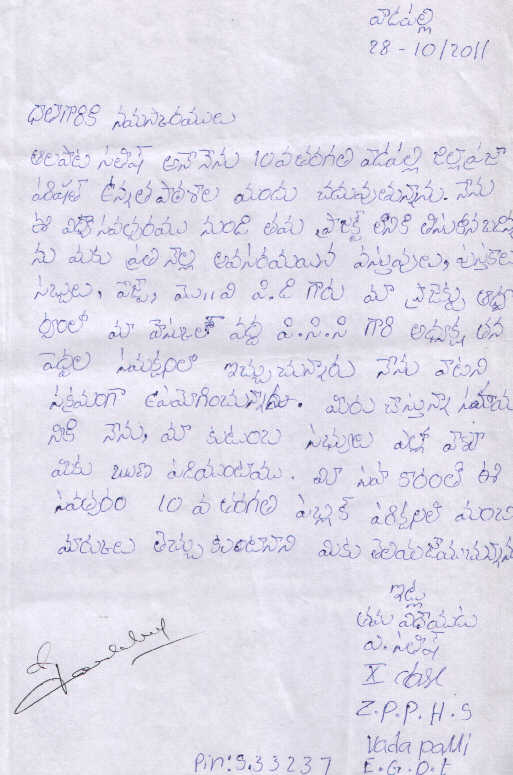 వాడపల్లి
28-10/2011
దాతగారికి నమస్కారములు
తలపాట సతీష్ అనానేను 10వతరగతి వాడపల్లి జిల్లాప్రజా
పరిషత్ ఉన్నత పాఠశాల యందు చదువుతున్నాను. నేను
ఈ విద్యా సంవత్సరము నుండి తమ ప్రాజెక్ట్
ను మకు ప్రతి నెల్ల అవసరమయిన వస్తువులు, పుస్తకాలు
సబ్బులు, పేస్ట్, మొ॥వి పి.డి గారు మా ప్రాజెక్టు ఆధ్వ
ర్యంలో మా వద్ద పి.సి.సి గారి అధ్యక్ష తన
పెద్దల సమక్షంలో ఇచ్చుచున్నారు నేను వాటిని
సక్రమంగా ఉపయోగించుచున్నాను. మీరు చేస్తున్నా సహాయ
నికి నేను, మా కుటుంబ సభ్యులు ఎల్లా వేళా
మీకు ఋణ పడియుంటాము. మీ సహకారంతో ఈ
సవత్సరం 10 వ తరగతి పబ్లిక్ పరిక్షలలో మంచి
మారుకులు తెచ్చుకుంటానని మీకు తెలియజేయుచున్నాను
ఇట్లు
తమ విదేయుడు
టి.సతీష్
X class
Z.P.P.H.S
Vadapalli
Pin:533237 E.G.Dt